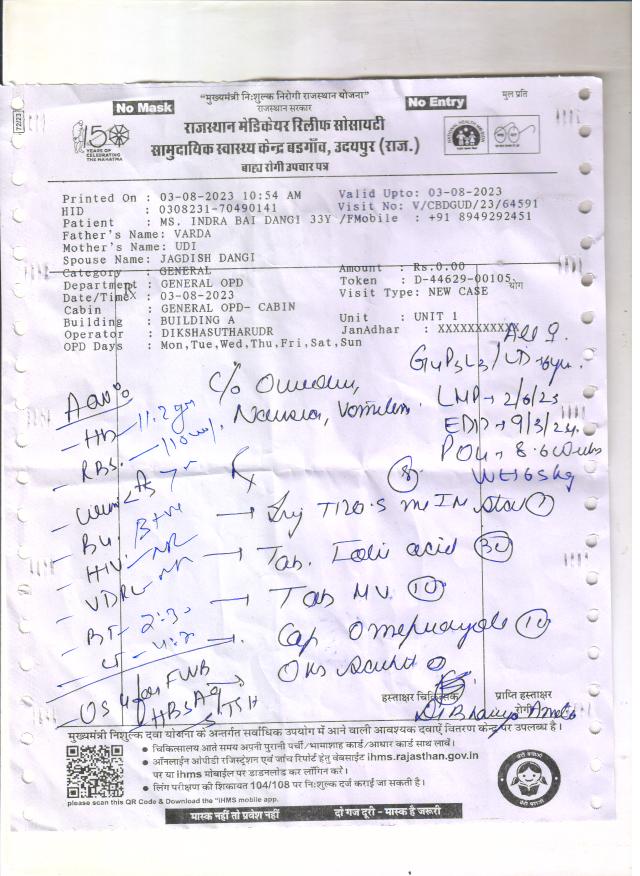 72/23
No Mask
"मुख्यमंत्री नि:शुल्क निरोगी राजस्थान योजना"
राजस्थान सरकार
No Entry
मुल प्रति
राजस्थान मेडिकेयर रिलीफ सोसायटी
सामुदायिक स्वास्थ्य केन्द्र बडगाँव, उदयपुर (राज.)
बाह्य रोगी उपचार पत्र
150 YEARS OF CELEBRATING THE MAHATMA
Printed On : 03-08-2023 10:54 AM Valid Upto: 03-08-2023
HID : 0308231-70490141 Visit No: V/CBDGUD/23/64591
Patient : MS. INDRA BAI DANGI 33Y /F Mobile : +91 8949292451
Father's Name: VARDA
Mother's Name: UDI
Spouse Name: JAGDISH DANGI
Category : GENERAL Amount : Rs.0.00
Department : GENERAL OPD Token : D-44629-00105 योग
Date/Time : 03-08-2023 Visit Type: NEW CASE
Cabin : GENERAL OPD- CABIN
Building : BUILDING A Unit : UNIT 1
Operator : DIKSHASUTHARUDR JanAdhar : XXXXXXXXXXX
OPD Days : Mon,Tue,Wed,Thu,Fri,Sat,Sun
C/o
Nausea, Vomiten
LMP → 2/6/23
EDD → 9/3/24
POG - 8.6 weeks
Wt 65 kg
- Hb 11.2 gm
- RBS. 110
- Urine < A S
- BG. B+ve
- HIV - NR
- VDRL - NR
- BT - 2:30
- CT -
Rx
→ Inj TT 0.5 ml IM Stat 1
→ Tab. Folic acid 30
→ Tab MV 10
→ Cap Omeprazole 10
→ ORS
USG for FWB
HBsAg
TSH
हस्ताक्षर चिकित्सक
प्राप्ति हस्ताक्षर
रोगी
मुख्यमंत्री निशुल्क दवा योजना के अन्तर्गत सर्वाधिक उपयोग में आने वाली आवश्यक दवाऐं वितरण केन्द्र पर उपलब्ध है।
● चिकित्सालय आते समय अपनी पुरानी पर्ची/भामाशाह कार्ड/आधार कार्ड साथ लावें।
● ऑनलाईन ओपीडी रजिस्ट्रेशन एवं जाँच रिपोर्ट हेतु वेबसाईट ihms.rajasthan.gov.in
पर या ihms मोबाईल पर डाउनलोड कर लॉगिन करें।
● लिंग परीक्षण की शिकायत 104/108 पर नि:शुल्क दर्ज कराई जा सकती है।
please scan this QR Code & Download the "IHMS mobile app.
मास्क नहीं तो प्रवेश नहीं दो गज दूरी - मास्क है जरूरी